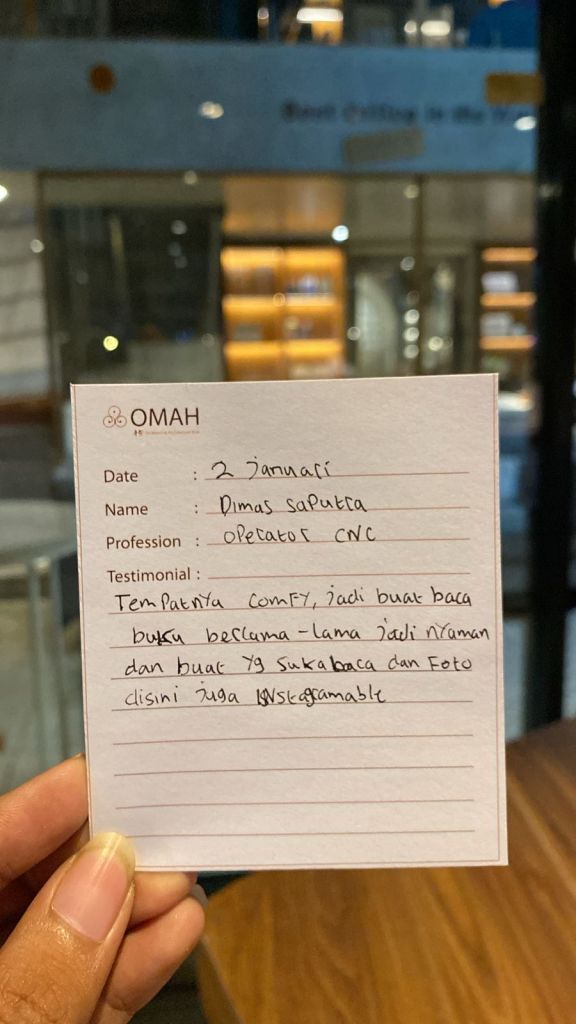 OMAH
Date : 2 januari
Name : Dimas saputra
Profession : operator CNC
Testimonial :
Tempatnya comfy, jadi buat baca
buku berlama-lama jadi nyaman
dan buat yg suka baca dan Foto
disini juga INstagramable